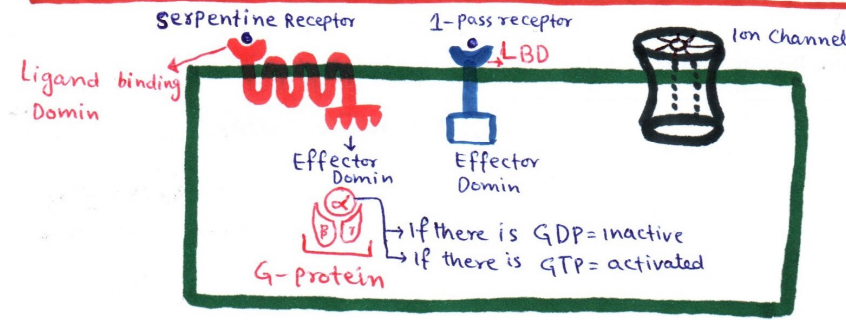 Serpentine Receptor
1-pass receptor
Ion Channel
LBD
Ligand binding
Domin
Effector
Domin
Effector
Domin
α
β γ
If there is GDP = inactive
If there is GTP = activated
G-protein